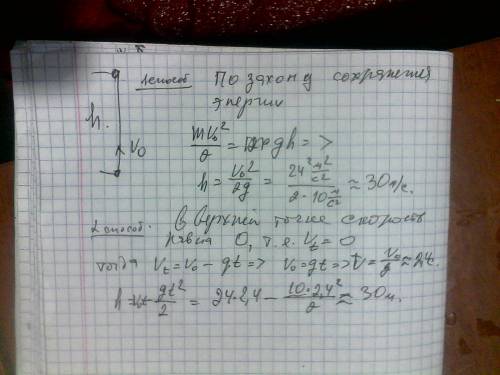 1 способ По закону сохранения
энергии
h
V₀
mV₀²/2 = mgh =>
h = V₀²/2g = 24² м²/с² / 2·10 м/с² ≈ 30 м/с.
2 способ. В верхней точке скорость
равна 0, т.е. Vₜ = 0
тогда Vₜ = V₀ - gt => V₀ = gt => t = V₀/g ≈ 2,4с.
h = gt²/2 = 24·2,4 - 10·2,4²/2 ≈ 30м.